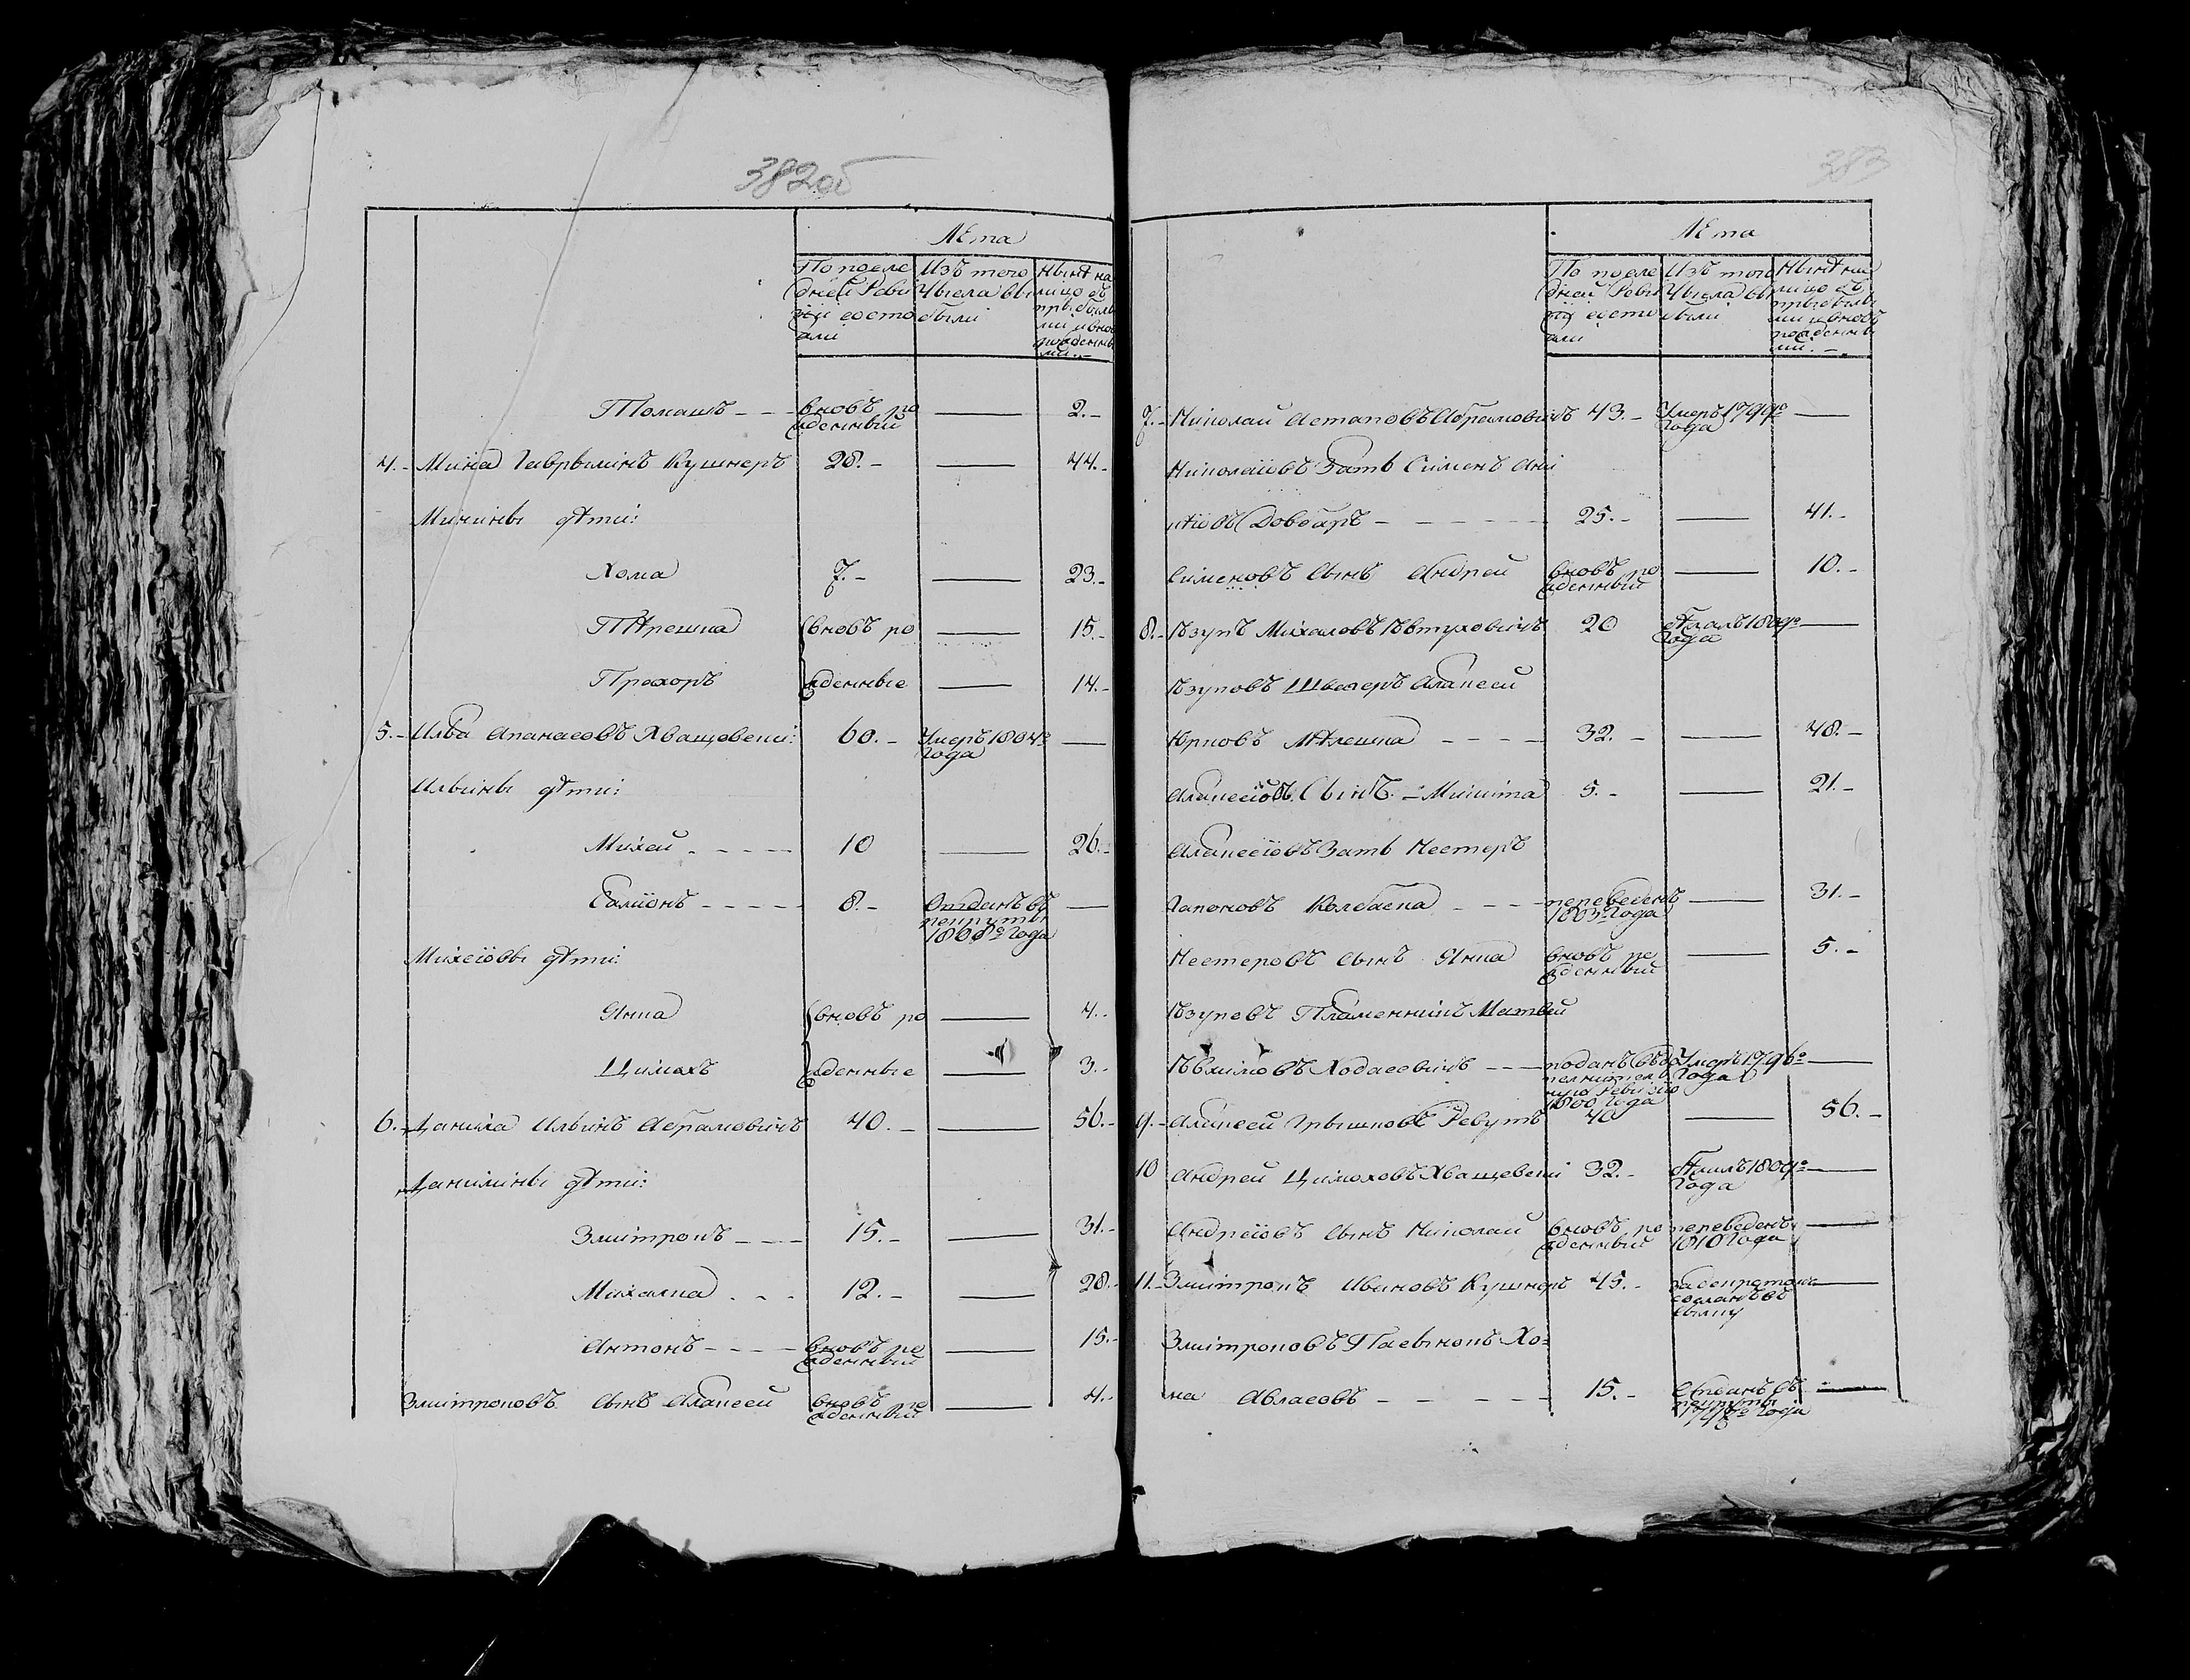 382об
Лѣта
По после
дней Реви
зіи состо
али
Изъ того
Числа вы
были
Нынѣ на
лицо съ
прибылы
ми и внов
рожденны
ми. –
Томашъ - - - вновъ ро
жденный — 2. –
4. – Мина Гаврылинъ Кушнеръ 28. – — 44. –
Минины дѣти:
Хома 7. – — 23. –
Тѣрешка вновъ ро — 15. –
Прохоръ жденные — 14. –
5. – Илья Апанасовъ Хващовски: 60. – Умеръ 1804го
года —
Ильины дѣти:
Михей - - - - 10 — 26. –
Самонъ - - - - - 8. – Отданъ въ
рекруты
1808го года —
Михеіовы дѣти:
Янка вновъ ро — 4. –
Цимохъ жденные — 3. –
6. – Данила Ильинъ Абрамовичъ 40. – — 56. –
Данилины дѣти:
Змитрокъ - - - 15. – — 31. –
Михалка - - - 12. – — 28. –
Антонъ - - - - вновъ ро
жденный — 15. –
Змитроковъ Сынъ Алаксей вновъ ро
жденный — 4. –
383
Лѣта
По после
дней Реви
зіи состо
али
Изъ того
Числа вы
были
Нынѣ на
лицо съ
прибылы
ми и вновъ
рожденны
ми. –
7. – Николай Астаповъ Абрамовичъ 43. – Умеръ 1799го
года —
Николаіовъ Зать Сименъ Ані
кѣіовъ Довбаръ - - - - - - 25. – — 41. –
Сименовъ Сынъ Андрей вновъ ро
жденный — 10. –
8. – Язупъ Михаловъ Явтуховичъ 20 бѣжалъ 1809го
года —
Язуповъ Швагеръ Алаксей
Юрковъ Мѣлешка - - - - 32. – — 48. –
Алаксеіовъ Сынъ. – Микита 5. – — 21. –
Алаксеіовъ Зать Нестеръ
Гапоновъ Колбаска - - - переведенъ
1803го года — 31. –
Нестеровъ Сынъ Янка вновъ ро
жденный — 5. –
Язуповъ Пламенникъ Матвѣй
Явхимовъ Ходасевичъ - - поданъ въ до
полнител
ную Ревизію
1800 года Умеръ 1796го
года —
9. – Алаксей Грышковъ Ревутъ 40 — 56. –
10 Андрей Цимоховъ Хващевски 32. – бѣжалъ 1809го
года —
Андреіовъ Сынъ Николай вновъ ро
жденный переведенъ
1810 года —
11. – Змитрокъ Ивановъ Кушнеръ 45. –
сосланъ въ
Сылку —
Змитроковъ Пасынокъ Хо=
ма Авласовъ - - - - - - 15. – Отданъ въ
рекруты
года —